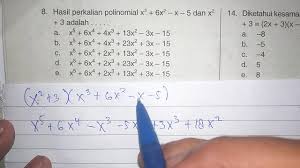 8. Hasil perkalian polinomial x³ + 6x² − x − 5 dan x²
+ 3 adalah . . . .
a. x⁵ + 6x⁴ + 4x³ + 13x² − 3x − 15
b. x⁵ + 6x⁴ + 2x³ + 23x² − 3x − 15
c. x⁵ + 6x⁴ + 4x³ + 23x² − 3x − 15
d. x⁵ + 6x⁴ + 2x³ + 13x² − 3x − 15
e. x⁵ + 6x⁴ + 2x³ + 13x² + 3x − 15
14. Diketahui kesama
+ 3 = (2x + 3)(x −
a. −8
b. −5
c. −4
d. 5
(x² + 3)(x³ + 6x² − x − 5)
x⁵ + 6x⁴ − x³ − 5x + 3x³ + 18x²